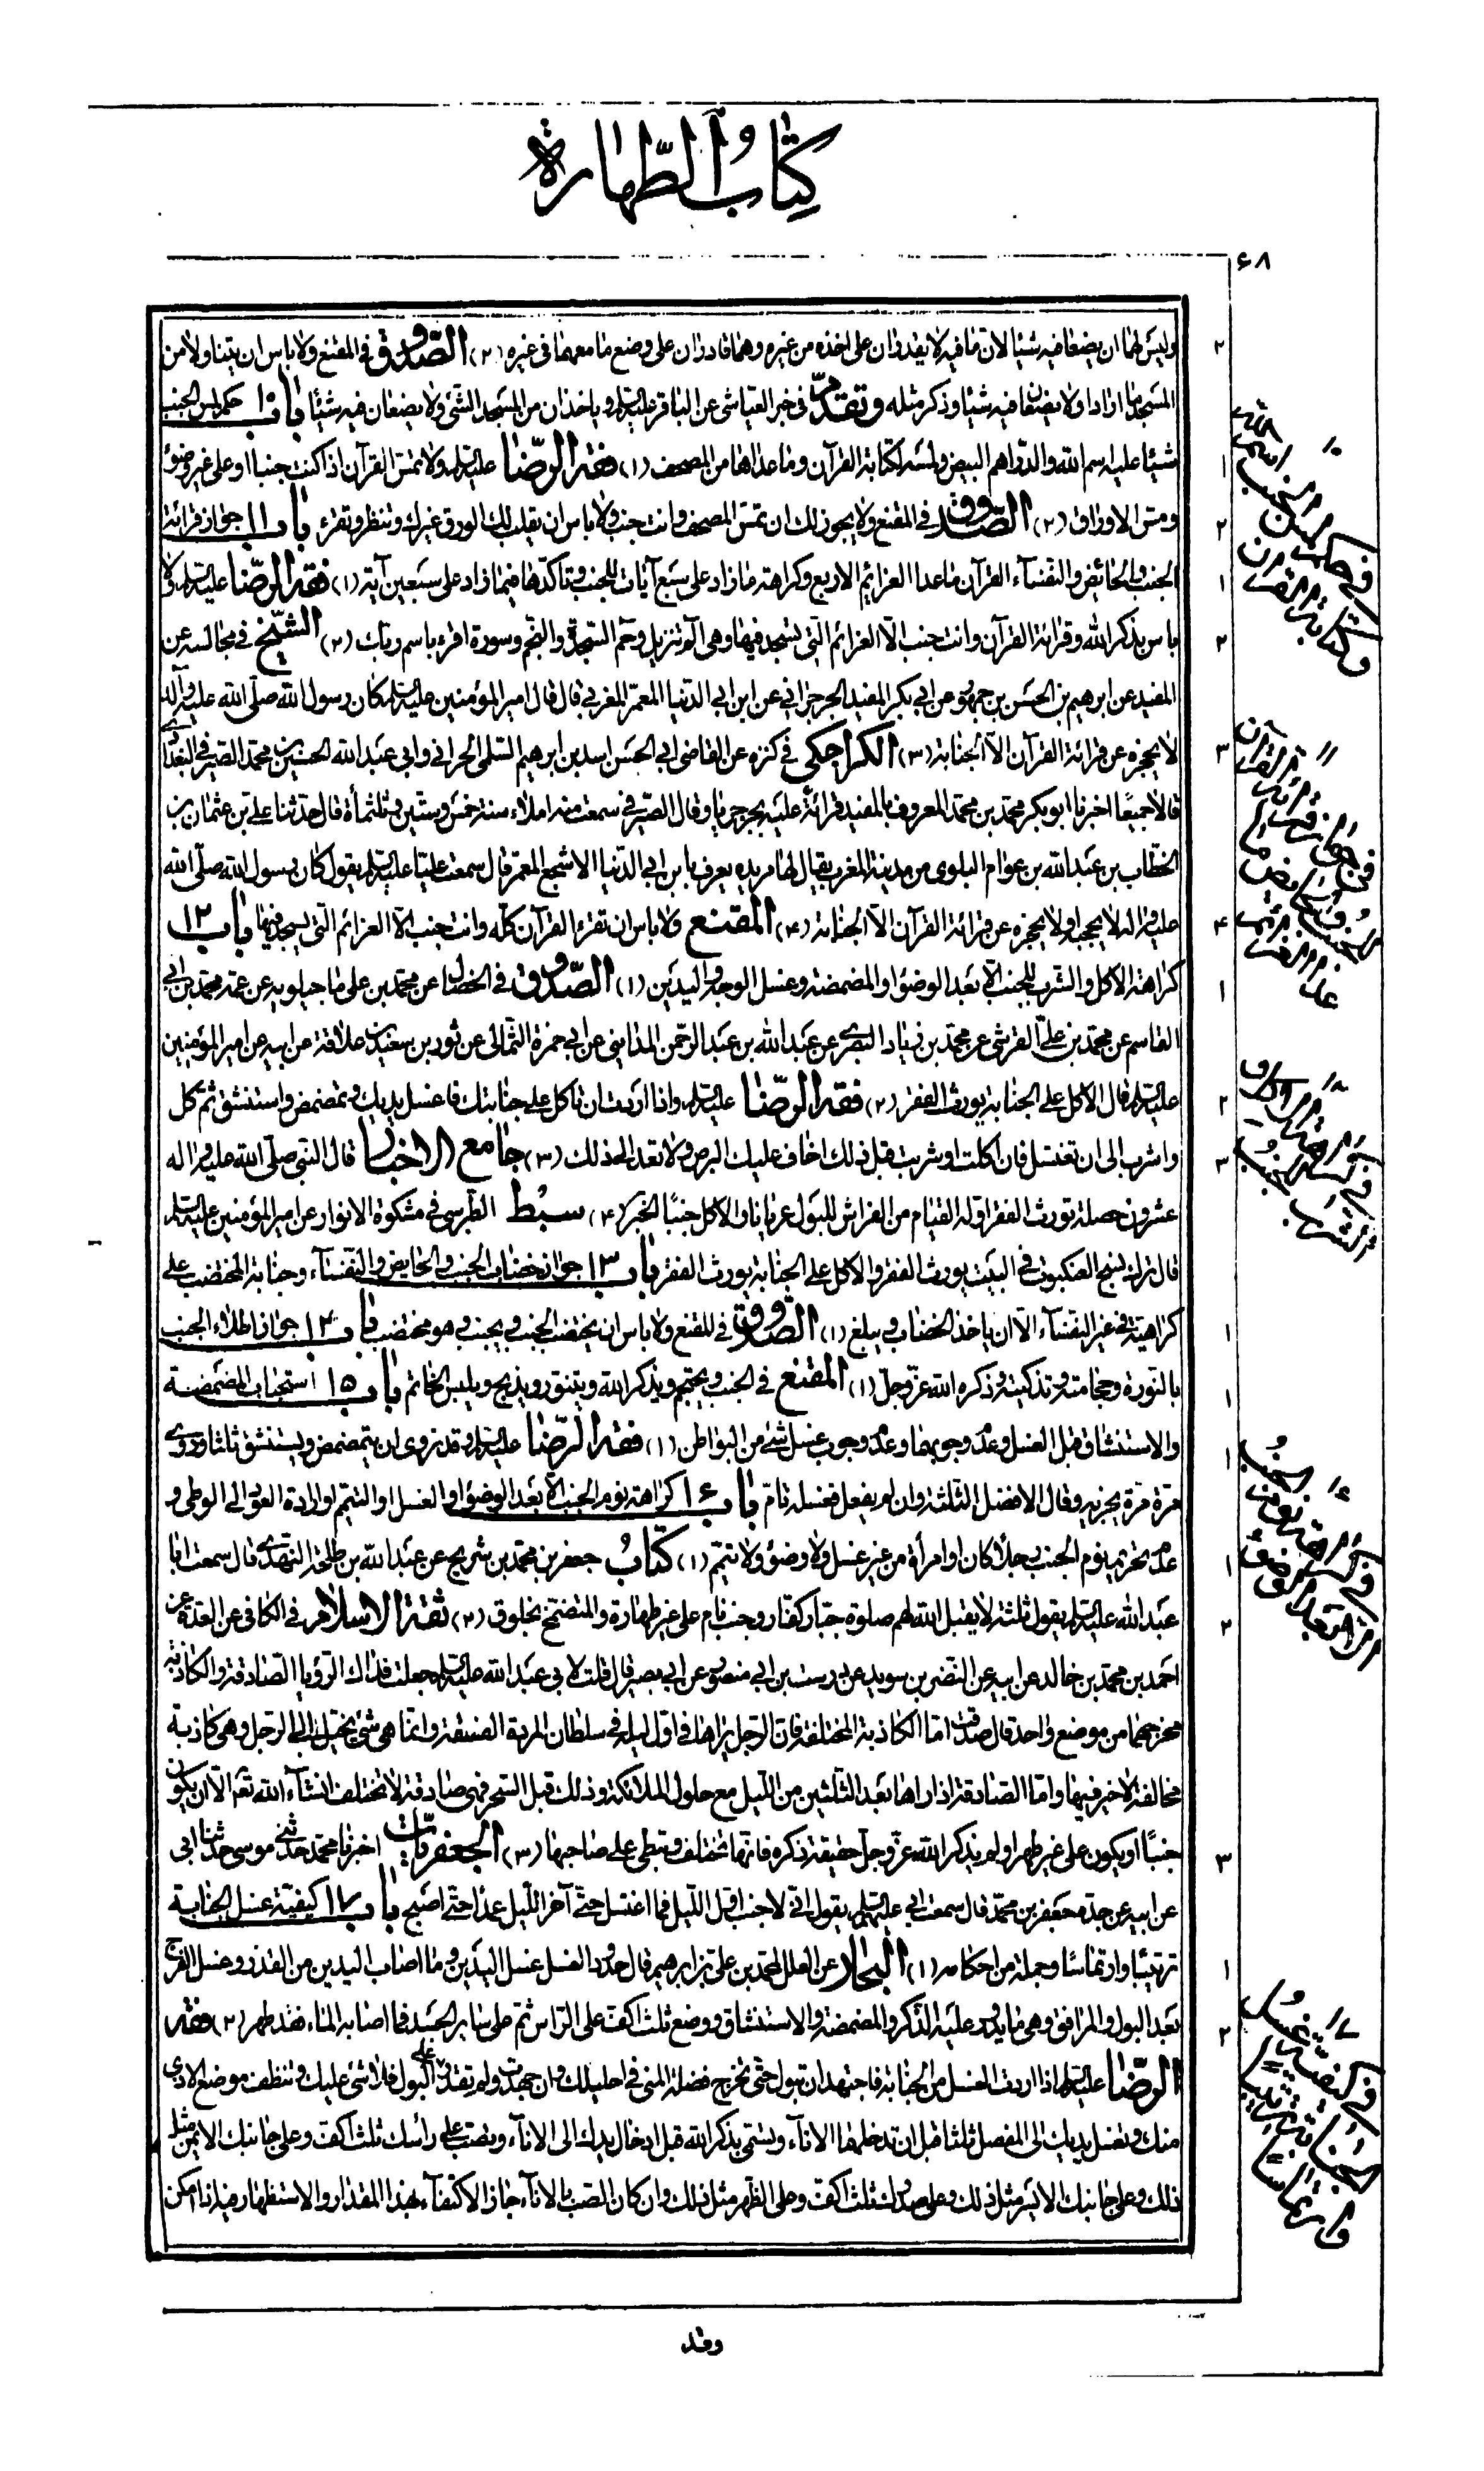 كتاب الطهارة
۶۸
وليس لهما ان يضعا فيه شيئا لان ما فيه لا يقدران على اخذه من غيره وهما قادران على وضع ما معهما في غيره (۲) الصدوق في المقنع ولا باس ان يتناولا من
المسجد ما ارادا ولا يضعان فيه شيئا وذكر مثله وتقدم في خبر العياشي عن الباقر عليه السلام وياخذان من المسجد الشئ ولا يضعان فيه شيئا باب ۱۰ حكم لمس الجنب
شيئا عليه اسم الله والدراهم البيض ولمسه لكتابة القرآن وما عداها من المصحف (۱) فقه الرضا عليه السلام ولا تمس القرآن اذا كنت جنبا او على غير وضوء
ومس الاوراق (۲) الصدوق في المقنع ولا يجوز لك ان تمس المصحف وانت جنب ولا باس ان يقلب لك الورق غيرك وتنظر وتقرء باب ۱۱ جواز قرائة
الجنب والحائض والنفسآء القرآن ماعدا العزائم الاربع وكراهة ما زاد على سبع آيات للجنب وتاكدها فيما زاد على سبعين آية (۱) فقه الرضا عليه السلام ولا
باس بذكر الله وقرائة القرآن وانت جنب الا العزائم التي تسجد فيها وهى الم تنزيل وحم السجدة والنجم وسورة اقرء باسم ربك (۲) الشيخ في مجالسه عن
المفيد عن ابرهيم بن الحسن بن جمهور عن ابي بكر المفيد الجرجراني عن ابن ابي الدنيا المعمر المغربي قال قال امير المؤمنين عليه السلام كان رسول الله صلى الله عليه وآله
لا يحجزه عن قرائة القرآن الا الجنابة (۳) الكراجكي في كنزه عن القاضي ابي الحسن اسد بن ابرهيم السلمي الحراني وابي عبد الله الحسين بن محمد الصيرفي البغدادي
قالا جميعا اخبرنا ابو بكر محمد بن محمد المعروف بالمفيد قرائة عليه بجرجرايا وقال الصيرفي سمعت منه املاء سنة خمس وستين وثلثمأة قال حدثنا علي بن عثمان بن
الخطاب بن عبد الله بن عوام البلوى من مدينة بالمغرب يقال لها مزيده يعرف بابن ابي الدنيا الاشج المعمر قال سمعت عليا عليه السلام يقول كان رسول الله صلى الله
عليه واله لا يحجبه او لا يحجزه عن قرائة القرآن الا الجنابة (۴) المقنع ولا باس ان تقرء القرآن كله وانت جنب الا العزائم التي يسجد فيها باب ۱۲
كراهة الاكل والشرب للجنب الا بعد الوضوء او المضمضة وغسل الوجه واليدين (۱) الصدوق في الخصال عن محمد بن علي ماجيلويه عن عمه محمد بن ابي
القاسم عن محمد بن علي القرشي عن محمد بن زياد البصري عن عبد الله بن عبد الرحمن المدايني عن ابي حمزة الثمالي عن ثور بن سعيد بن علاقة عن ابيه عن امير المؤمنين
عليه السلام قال الاكل على الجنابة يورث الفقر (۲) فقه الرضا عليه السلام واذا اردت ان تاكل على جنابتك فاغسل يديك وتمضمض واستنشق ثم كل
واشرب الى ان تغتسل فان اكلت او شربت قبل ذلك اخاف عليك البرص ولا تعد الى ذلك (۳) جامع الاخبار قال النبي صلى الله عليه واله
عشرون خصلة تورث الفقر اوله القيام من الفراش للبول عريانا والاكل جنبا الخبر (۴) سبط الطبرسي في مشكوة الانوار عن امير المؤمنين عليه السلام
قال ترك نسج العنكبوت في البيت يورث الفقر والاكل على الجنابة يورث الفقر باب ۱۳ جواز خضاب الجنب والحايض والنفسآء وجنابة المختضب على
كراهية في غير النفسآء الا ان ياخذ الخضاب ويبلغ (۱) الصدوق في المقنع ولا باس ان يختضب الجنب ويجنب وهو مختضب باب ۱۴ جواز اطلاء الجنب
بالنورة وحجامته وتذكيته وذكره الله عز وجل (۱) المقنع في الجنب ويحتجم ويذكر الله ويتنور ويذبح ويلبس الخاتم باب ۱۵ استحباب المضمضة
والاستنشاق قبل الغسل وعدم وجوبهما وعدم وجوب غسل شئ من البواطن (۱) فقه الرضا عليه السلام وقد نروى ان يتمضمض ويستنشق ثلثا وروى
مرة مرة يجزيه وقال الافضل الثلثة وان لم يفعل فغسله تام باب ۱۶ كراهة نوم الجنب الا بعد الوضوء او الغسل او التيمم او ارادة العود الى الوطي و
عدم تحريم نوم الجنب رجلا كان او امرأة من غير غسل ولا وضوء ولا تيمم (۱) كتاب جعفر بن محمد بن شريح عن عبد الله بن طلحة النهدي قال سمعت ابا
عبد الله عليه السلام يقول ثلثة لا يقبل الله لهم صلوة جبار كفار وجنب نام على غير طهارة والمتضمخ بخلوق (۲) ثقة الاسلام في الكافي عن العدة عن
احمد بن محمد بن خالد عن ابيه عن النضر بن سويد عن درست بن ابي منصور عن ابي بصير قال قلت لابي عبد الله عليه السلام جعلت فداك الرؤيا الصادقة والكاذبة
مخرجهما من موضع واحد قال صدقت اما الكاذبة المختلفة فان الرجل يراها في اول ليله في سلطان المردة الفسقة وانما هى شئ يخيل الى الرجل وهى كاذبة
مخالفة لا خير فيها واما الصادقة اذا راها بعد الثلثين من الليل مع حلول الملائكة وذلك قبل السحر فهى صادقة لا تختلف انشآء الله تعم الا ان يكون
جنبا او يكون على غير طهر او لم يذكر الله عز وجل حقيقة ذكره فانها تختلف وتبطي على صاحبها (۳) الجعفريات اخبرنا محمد حدثني موسى حدثنا ابي
عن ابيه عن جده جعفر بن محمد قال سمعت ابي عليهما السلام يقول اني لاجنب اول الليل فما اغتسل حتى آخر الليل عمدا حتى اصبح باب ۱۷ كيفية غسل الجنابة
ترتيبا وارتماسا وجملة من احكامه (۱) البحار عن العلل لمحمد بن علي بن ابرهيم قال حدود الغسل غسل اليدين وما اصاب اليدين من القذر وغسل الفرج
بعد البول والمرافق وهى ما يدور عليه الذكر والمضمضة والاستنشاق ووضع ثلث اكف على الراس ثم على ساير الجسد فما اصابه المآء فقد طهر (۲) فقه
الرضا عليه السلام اذا اردت الغسل من الجنابة فاجتهد ان تبول حتى تخرج فضلة المنى في احليلك وان جهدت ولم تقدر على البول فلا شئ عليك وتنظف موضع الاذى
منك وتغسل يديك الى المفصل ثلثا قبل ان تدخلها الانآء وتسمى بذكر الله قبل ادخال يدك الى الانآء وتصب على رأسك ثلث اكف وعلى جانبك الايمن مثل
ذلك وعلى جانبك الايسر مثل ذلك وعلى صدرك ثلث اكف وعلى الظهر مثل ذلك وان كان الصب بالانآء جاز الاكتفآء بهذا المقدار والاستظهار فيه اذا امكن
وقد